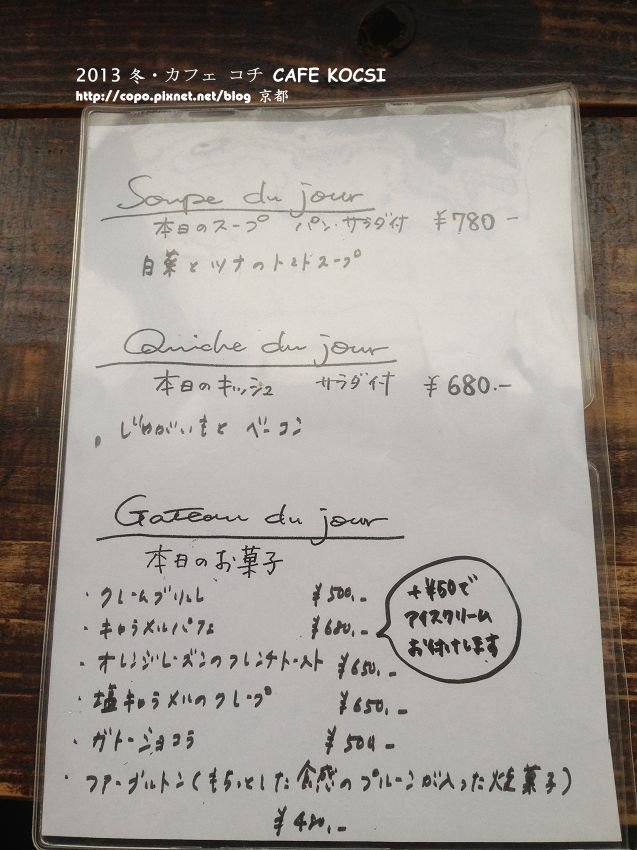 2013 冬・カフェ コチ CAFE KOCSI
http://copo.pixnet.net/blog 京都
Soupe du jour
本日のスープ パン・サラダ付 ¥780-
白菜とツナのトマトスープ
Quiche du jour
本日のキッシュ サラダ付 ¥680.-
・じゃがいもと ベーコン
Gateau du jour
本日のお菓子
・クレームブリュレ ¥500.-
・キャラメルパフェ ¥680.-
・オレンジレーズンのフレンチトースト ¥650.-
・塩キャラメルのクレープ ¥650.-
・ガトーショコラ ¥500.-
・ファーブルトン(もちっとした食感のプルーンが入った焼菓子)
¥480.-
+¥50で
アイスクリーム
お付けします